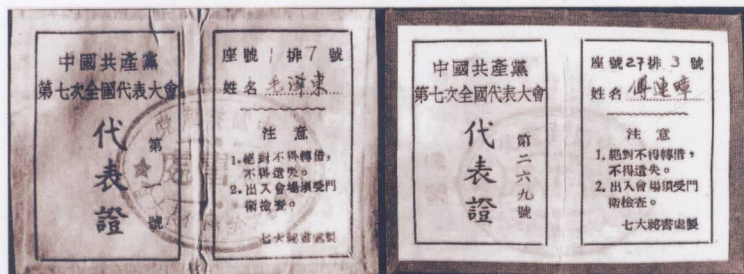 中國共產黨
第七次全國代表大會
代表證
第一號
座號1排7號
姓名毛澤東
注意
1.絕對不得轉借,
不得遺失。
2.出入會場須受門
衛檢查。
七大祕書處製
中國共產黨
第七次全國代表大會
代表證
第二六九號
座號27排3號
姓名傅連暲
注意
1.絕對不得轉借,
不得遺失。
2.出入會場須受門
衛檢查。
七大祕書處製